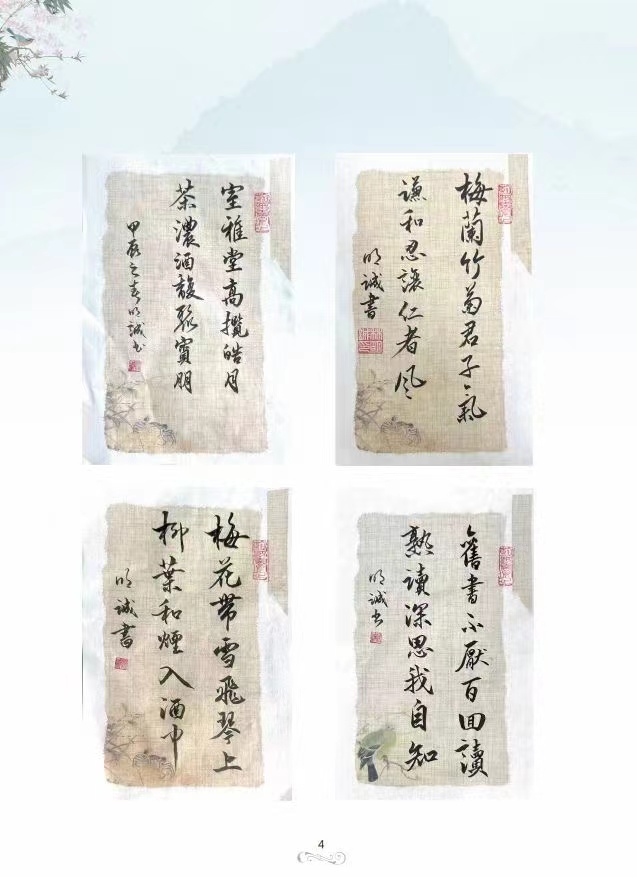 室雅堂高攬皓月
茶濃酒馥聚賓朋
甲辰之春明誠书
梅蘭竹菊君子氣
謙和忍讓仁者風
明誠書
梅花帶雪飛琴上
柳葉和煙入酒中
明誠書
舊書不厭百回讀
熟讀深思我自知
明誠书
4